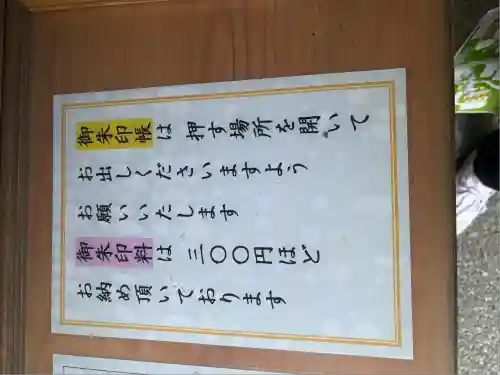 御朱印帳は 押す場所を開いて
お出しくださいますよう
お願いいたします
御朱印料は 三〇〇円ほど
お納め頂いております